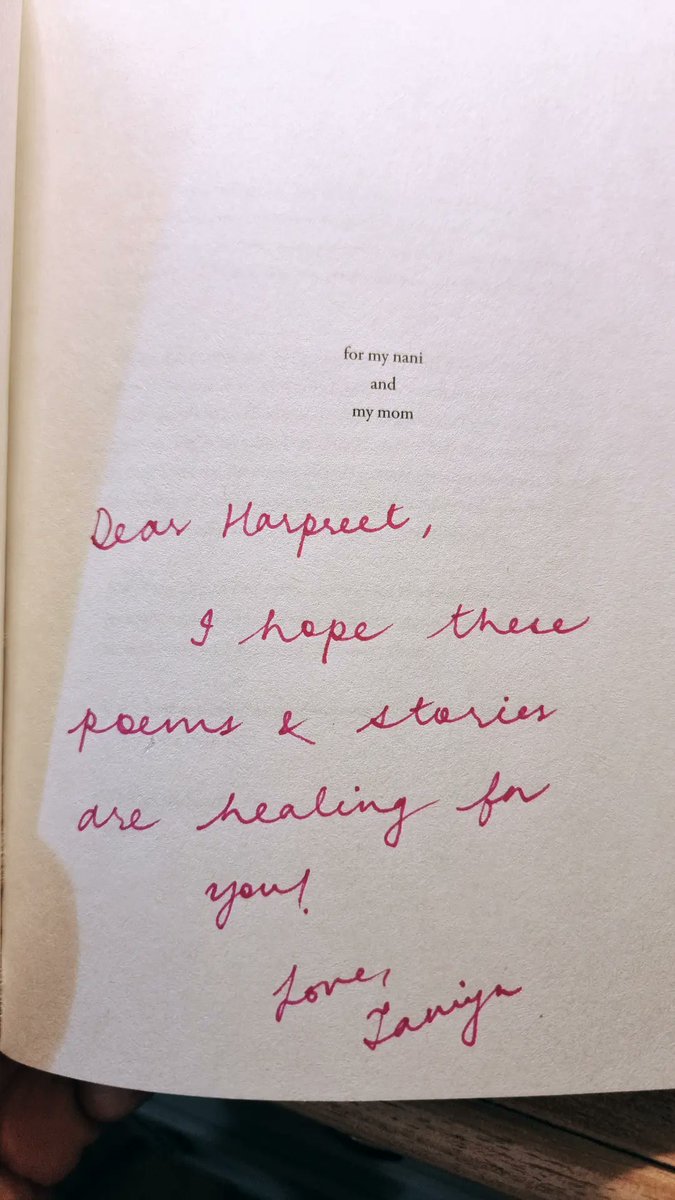 for my nani
and
my mom
Dear Harpreet,
I hope these
poems & stories
are healing for
you!
Love,
Taniya